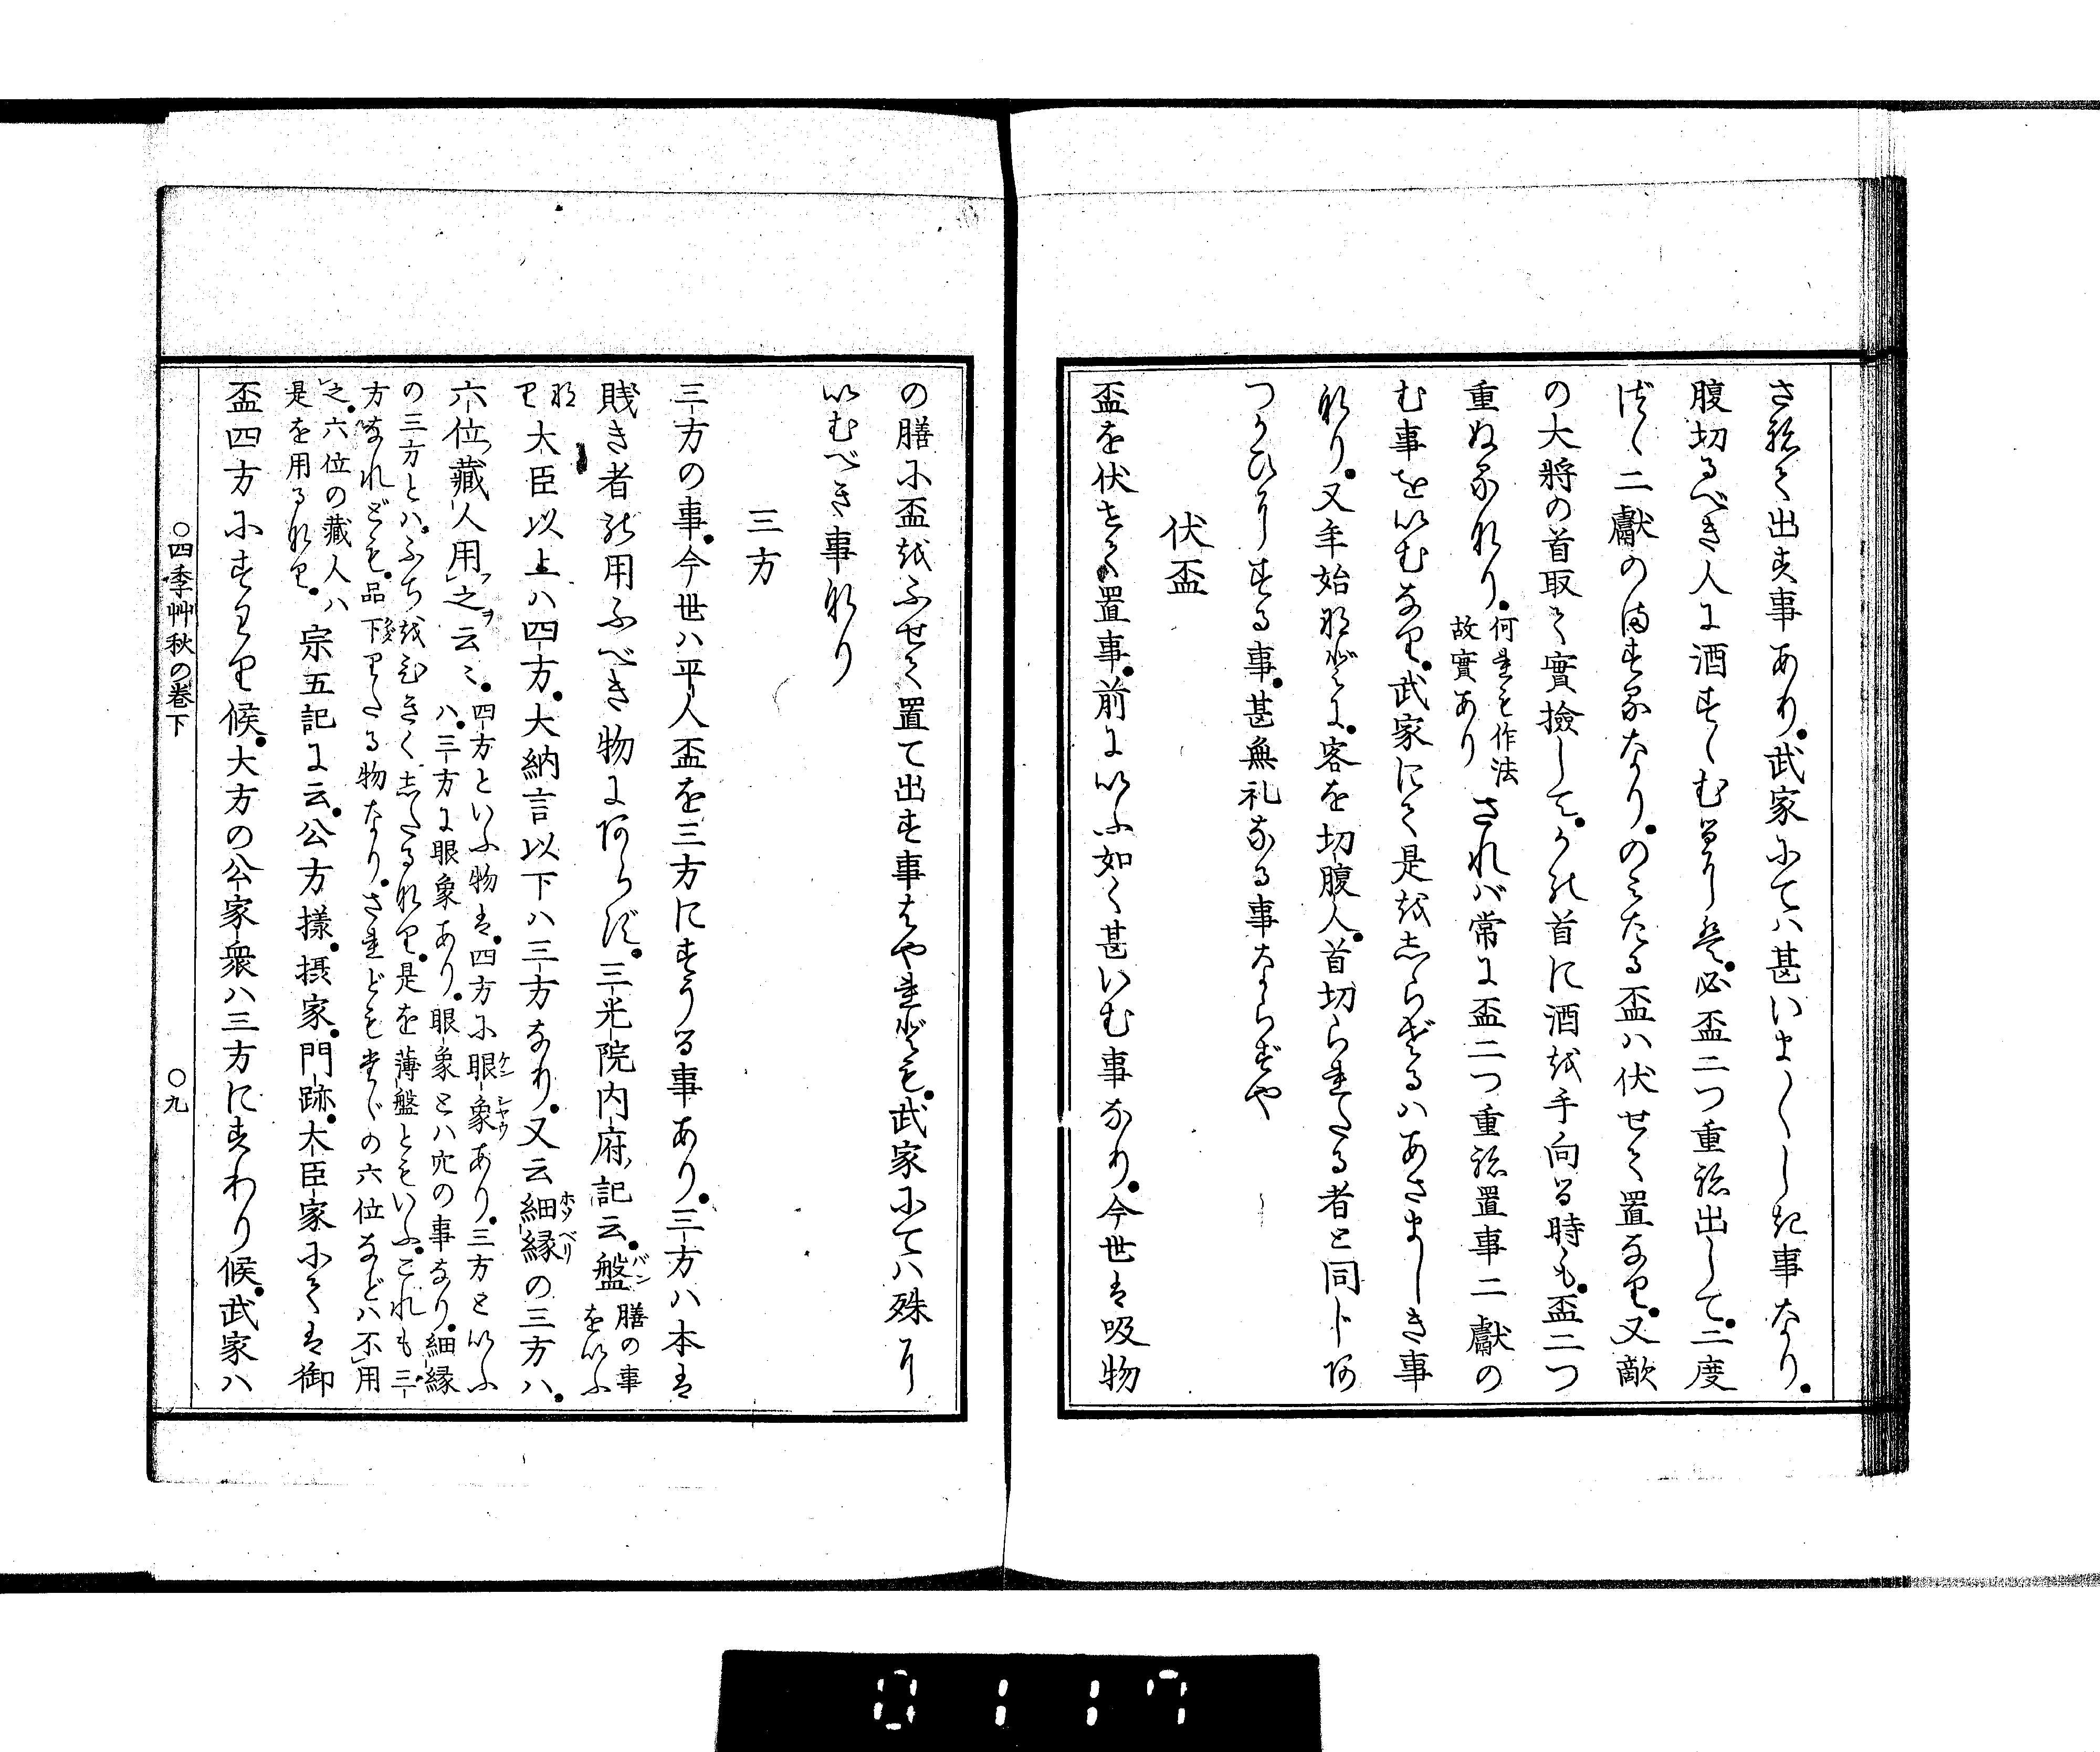 さねて出す事あり。武家にてハ甚いま〳〵しき事なり。
腹切るべき人に酒すゝむるにハ。必盃二つ重ね出して。二度
づゝ二獻のまするなり。のみたる盃ハ伏せて置なり。又敵
の大將の首取て實撿して。その首に酒を手向る時も。盃二つ
重ぬるなり。何れも作法
故實ありされバ常に盃二つ重ね置事二獻の
む事をいむなり。武家にて是をしらざるハあさましき事
なり。又年始などに。客を切腹人。首切られたる者と同じあ
つかひにする事。甚無礼なる事ならずや
伏盃
盃を伏せて置事。前にいふ如く甚いむ事なり。今世は吸物
の膳に盃をふせて置て出す事はやれども。武家にてハ殊に
いむべき事なり
三方
三方の事。今世ハ平人盃を三方にすうる事あり。三方ハ本は
賎き者の用ふべき物にあらず。三光院内府記云。盤膳の事
をいふ
なり大臣以上ハ四方。大納言以下ハ三方なり。又云細縁の三方ハ。
六位藏人用之云〻。四方といふ物は。四方に眼象あり。三方といふ
ハ。三方に眼象あり。眼象とハ穴の事なり。細縁
の三方とハ。ふちをひきくしたるなり。是を薄盤ともいふ。これも三
方なれども。品下りたる物なり。されどもたゞの六位などハ不用
之。六位の藏人ハ
是を用るなり。宗五記に云。公方樣。摂家。門跡。大臣家にては御
盃四方にすわり候。大方の公家衆ハ三方にすわり候。武家ハ
○四季艸秋の卷下 ○九
0117